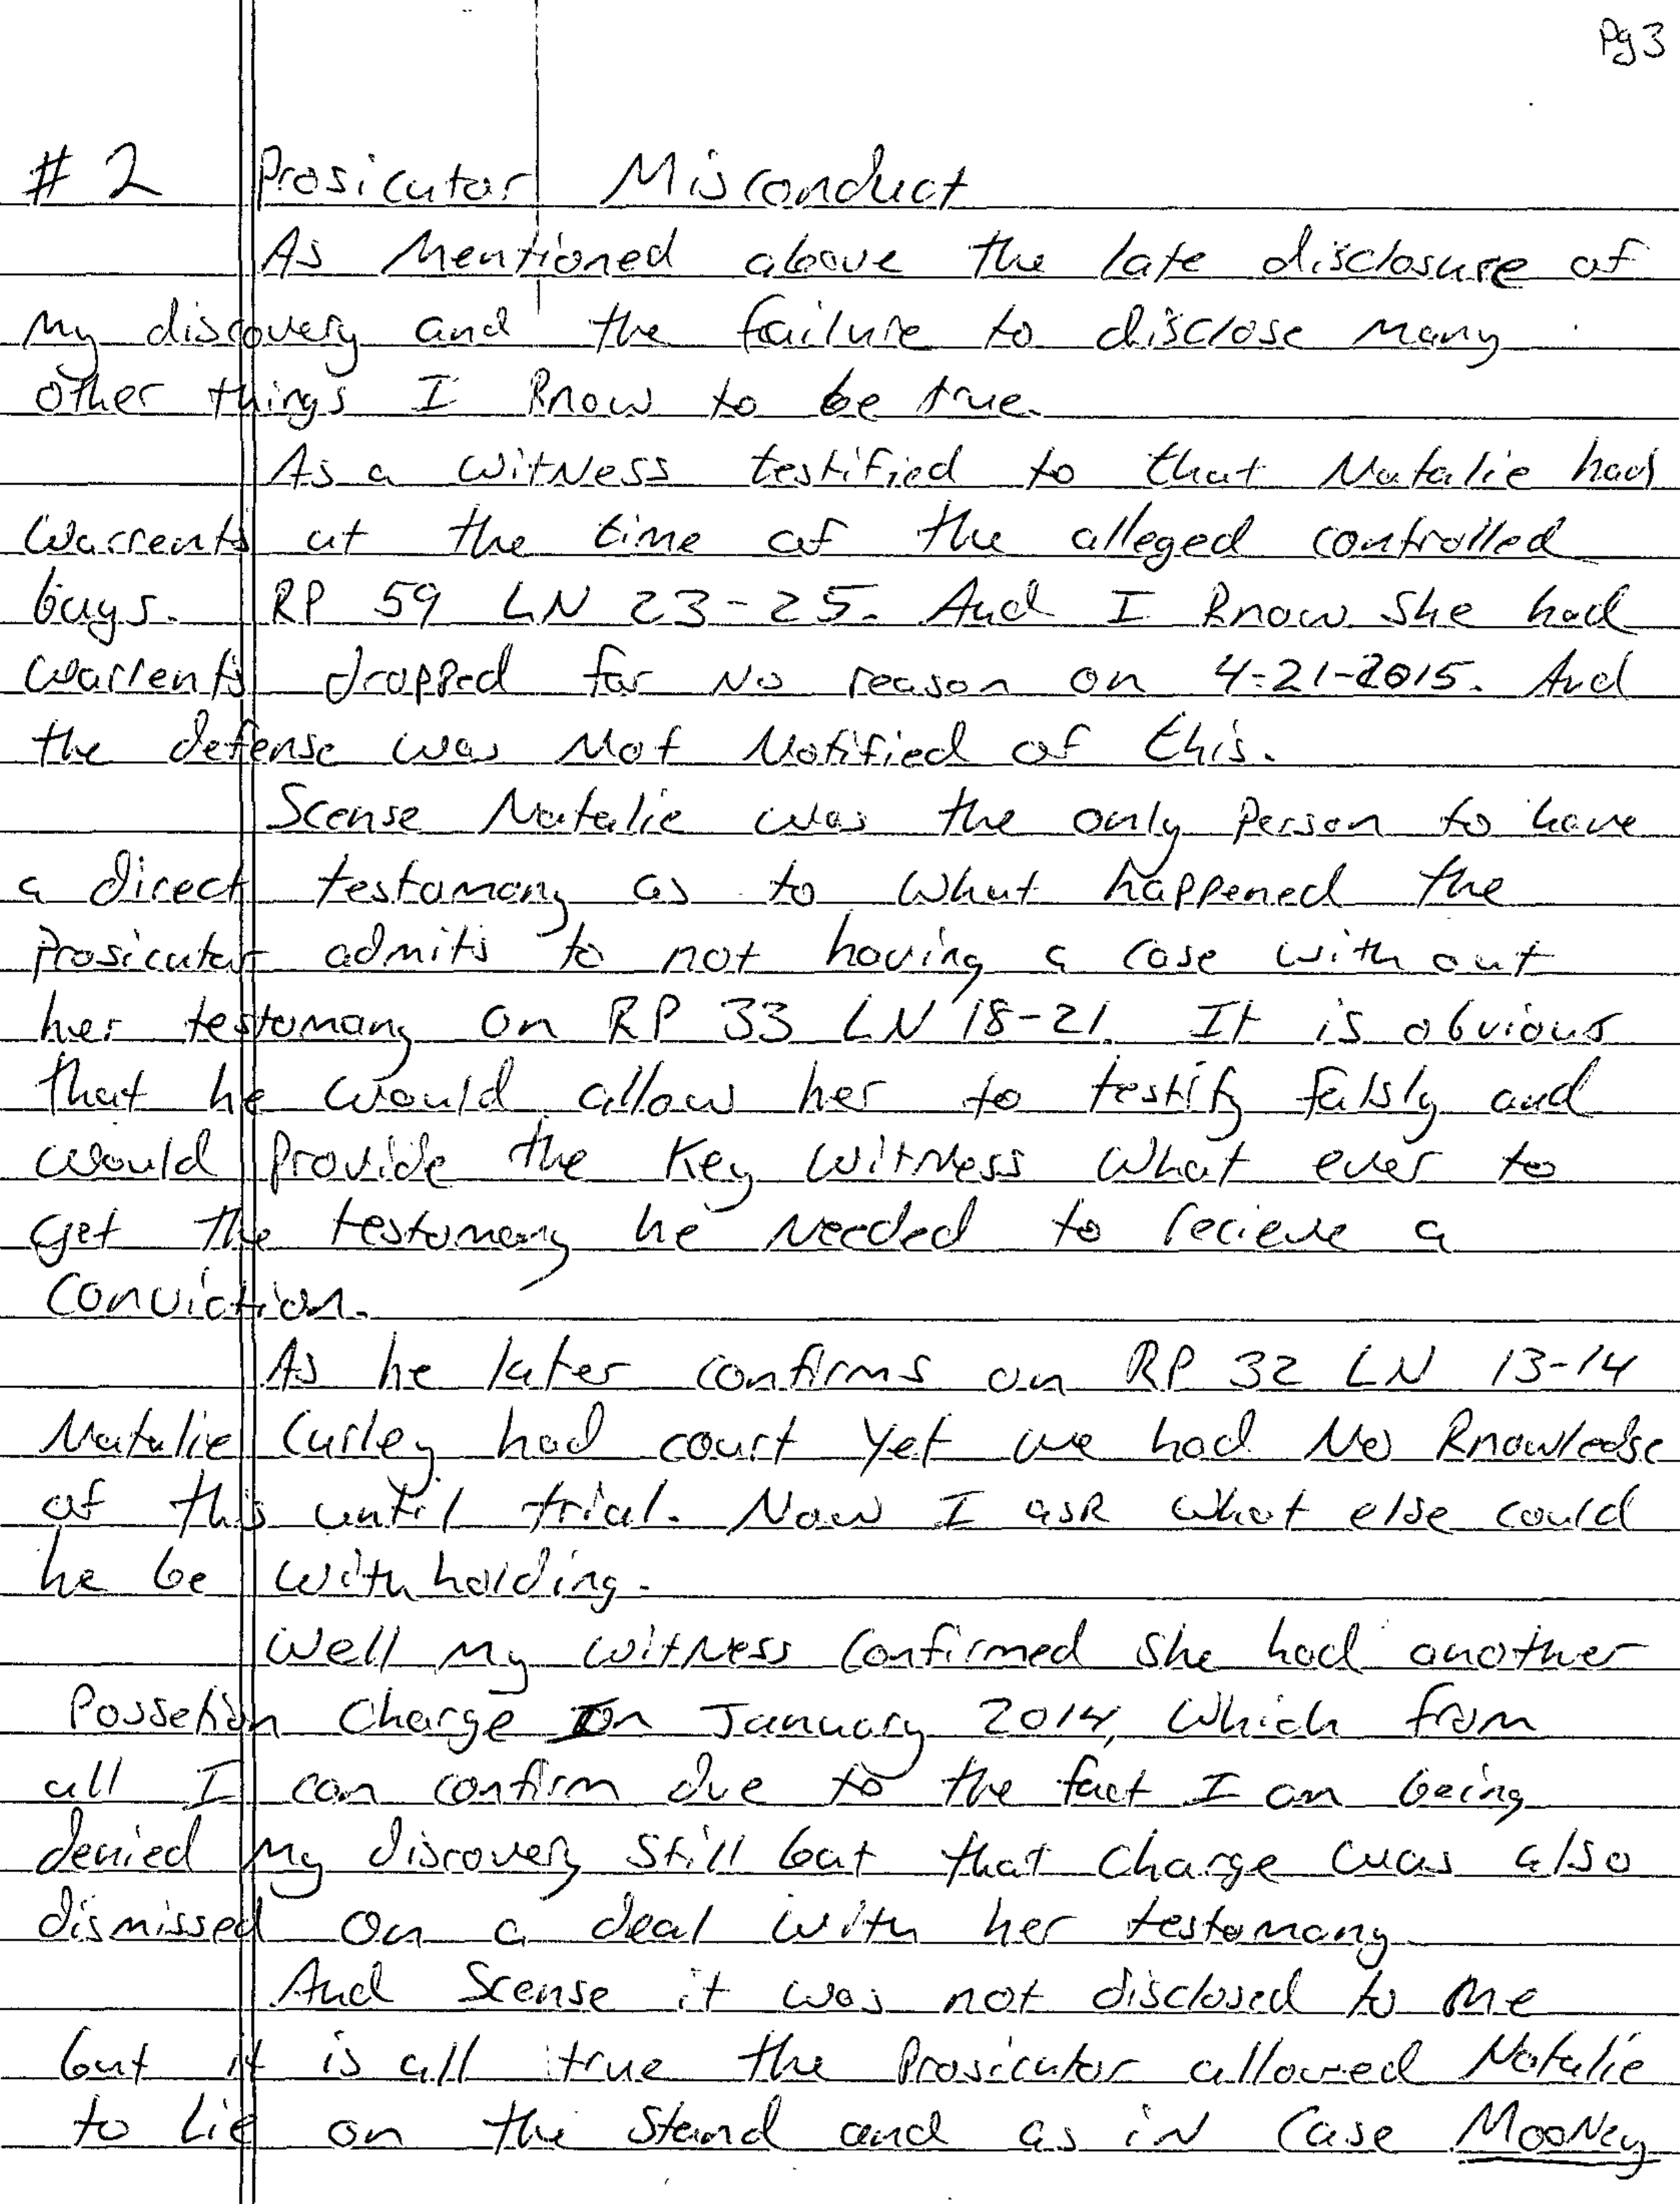 Pg 3
# 2 Prosicutor Misconduct
As Mentioned above the late disclosure of
My discovery and the failure to disclose Many
other things I know to be true.
As a Witness testified to that Natalie had
Warrents at the time of the alleged controlled
buys. RP 59 LN 23-25. And I know she had
warrents dropped for No reason on 4-21-2015. And
the defense was Not Notified of this.
Scense Natalie was the only Person to have
a direct testamony as to What happened the
Prosicutor admits to not having a case with out
her testomany on RP 33 LN 18-21. It is obvious
that he would allow her to testify falsly and
would Provide the Key Witness What ever to
get the testomony he Needed to recieve a
Conviction.
As he later confirms on RP 32 LN 13-14
Natalie Curley had court Yet we had No Knowledge
of this until trial. Now I ask What else could
he be withholding.
Well My witness Confirmed She had another
Possetion Charge In January 2014, Which from
all I can confirm due to the fact I am being
denied My discovery Still but that Charge was also
dismissed on a deal with her testomany.
And Scense it was not disclosed to Me
but it is all true the Prosicutor allowed Natalie
to Lie on the Stand and as in Case Mooney